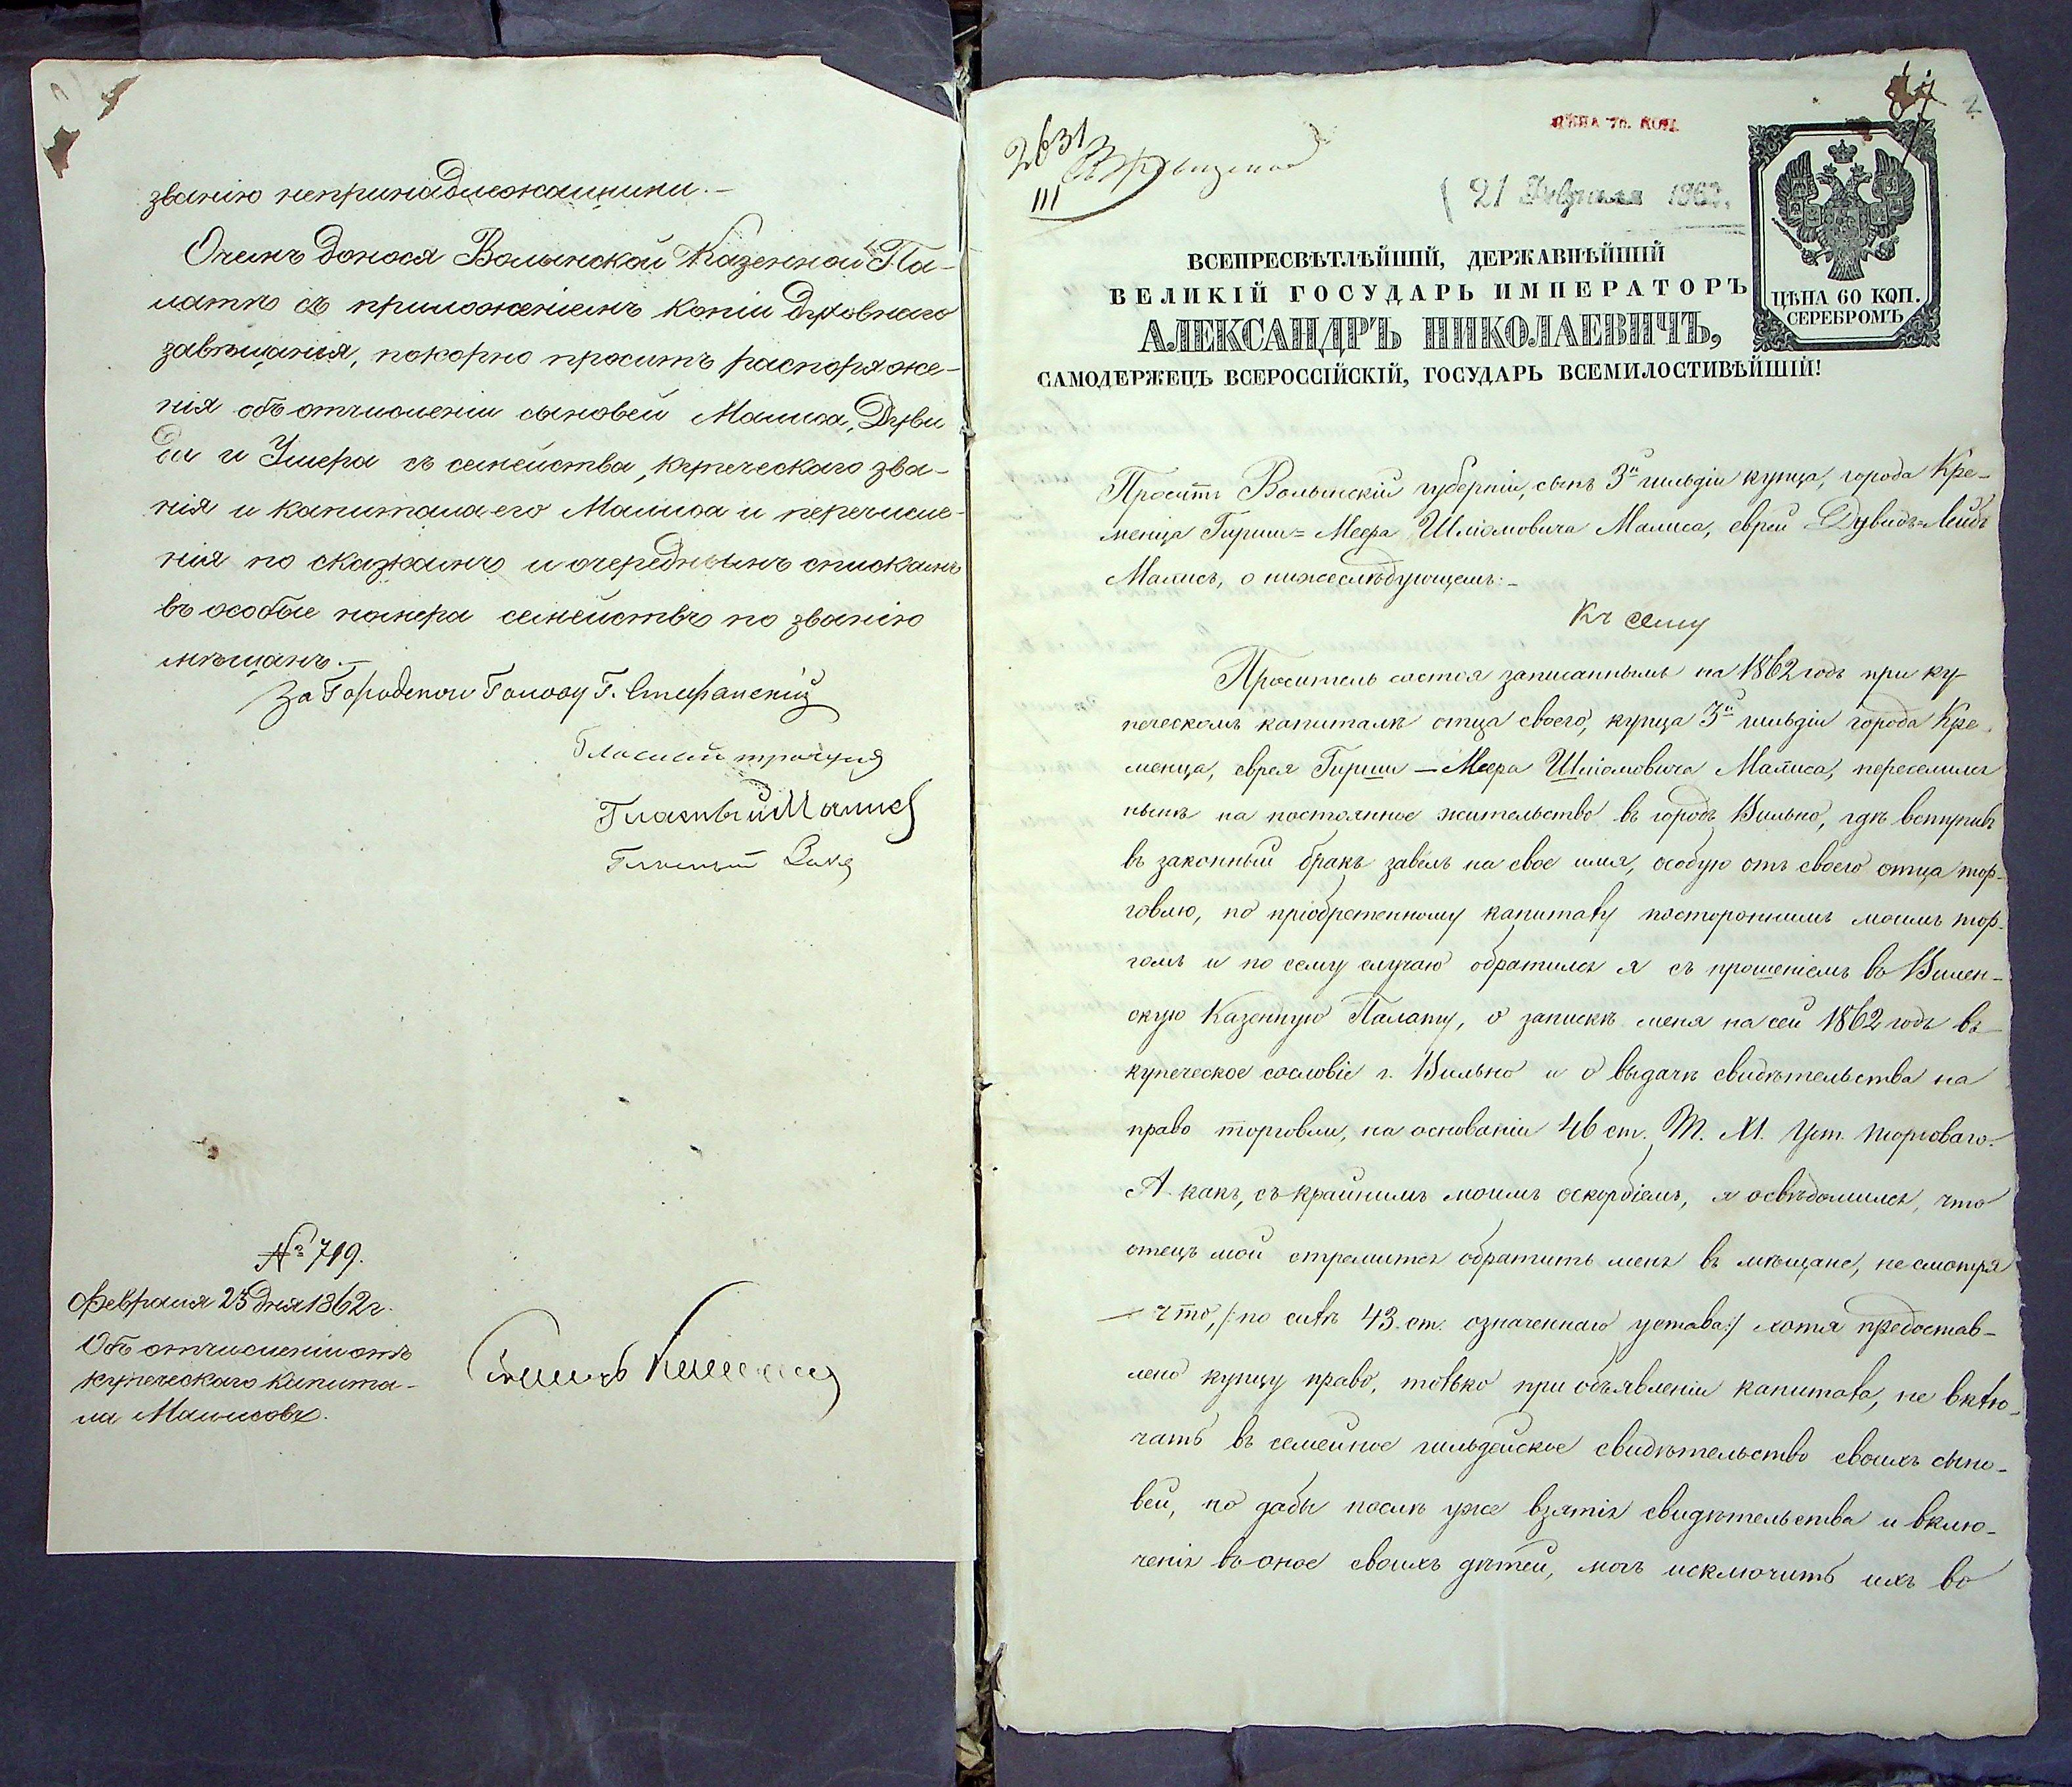 званію непринадлежащими.—
О чемъ донося Волынской Казенной Па-
латѣ съ приложеніемъ копіи духовнаго
завѣщанія, покорно проситъ распоряже-
нія объ отчисленіи сыновей Малиса, Дуви
да и Умера съ семейства, купеческаго зва-
нія и капитала его Малиса и перечисле-
нія по сказкамъ и очереднымъ спискамъ
въ особые номера семействъ по званію
мѣщанъ.—
За Городскаго Голову Г.
Гласный
Гласный Малис
Гласный
№ 719.
Февраля 23 дня 1862 г.
Объ отчисленіи отъ
купеческаго капита-
ла Малисовъ.
2631
III
ЦѢНА 70. КОП.
21 Февраля 1862.
2
ЦѢНА 60 КОП.
СЕРЕБРОМЪ
ВСЕПРЕСВѢТЛѢЙШІЙ, ДЕРЖАВНѢЙШІЙ
ВЕЛИКІЙ ГОСУДАРЬ ИМПЕРАТОРЪ
АЛЕКСАНДРЪ НИКОЛАЕВИЧЪ,
САМОДЕРЖЕЦЪ ВСЕРОССІЙСКІЙ, ГОСУДАРЬ ВСЕМИЛОСТИВѢЙШІЙ!
Проситъ Волынскій губерніи, сынъ 3й гильдіи купца, города Кре-
менца Гирш=Меера Шліомовича Малиса, еврей Дувидъ=Лейбъ
Малисъ, о нижеслѣдующемъ:—
Къ сему
Проситель состоя записаннымъ на 1862 годъ при ку
печескомъ капиталѣ отца своего, купца 3й гильдіи города Кре-
менца, еврея Гирши—Меера Шліомовича Малиса, переселился
нынѣ на постоянное жительство въ городъ Вильно, гдѣ вступивъ
въ законный бракъ завелъ на свое имя, особую отъ своего отца тор-
говлю, по пріобретенному капиталу постороннимъ моимъ тор-
гомъ и по сему случаю обратился я съ прошеніемъ въ Вилен-
скую Казенную Палату, о запискѣ меня на сей 1862 годъ въ
купеческое сословіе г. Вильно и о выдачѣ свидѣтельства на
право торговли, на основаніи 46 ст. Т. XI. Уст. торговаго.
А какъ, съ крайнимъ моимъ оскорбіемъ, я освѣдомился, что
отецъ мой стремится обратить меня въ мѣщане, не смотря
—что, /: по силѣ 43. ст. означеннаго устава :/ хотя предостав-
лено купцу право, только при объявленіи капитала, не вклю-
чать въ семейное гильдейское свидѣтельство своихъ сыно-
вей, но дабы послѣ уже взятія свидѣтельства и вклю-
ченія въ оное своихъ дѣтей, могъ исключить ихъ во